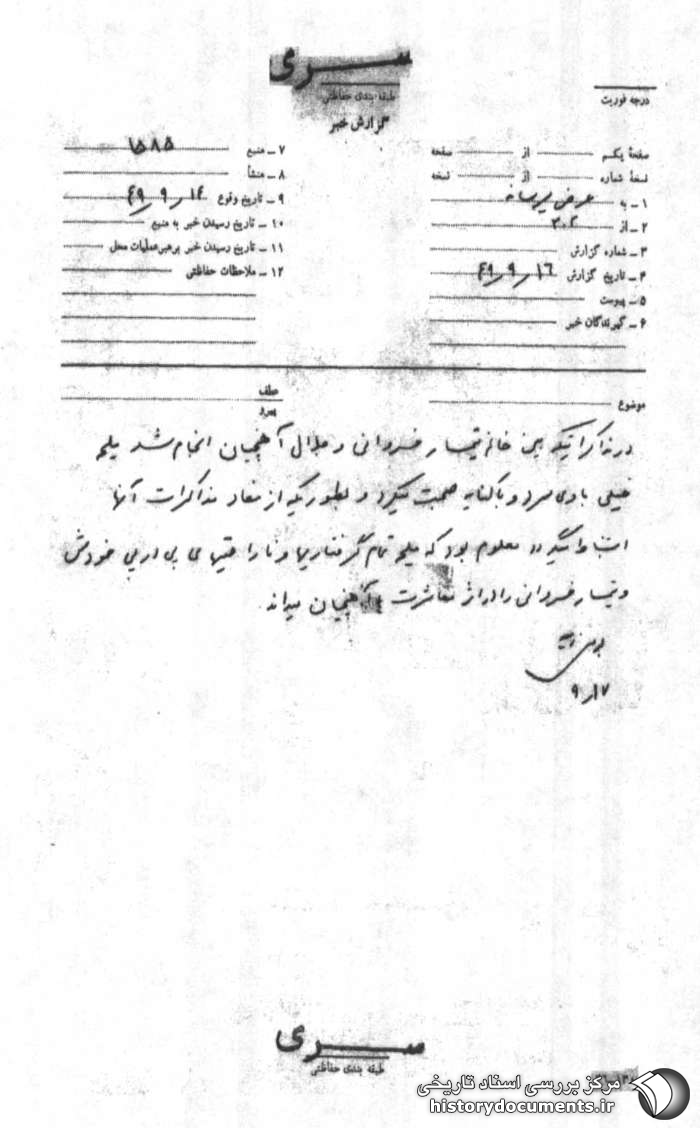 سری
طبقه بندی حفاظتی
گزارش خبر
درجه فوریت
صفحهٔ یکم از صفحه
نسخهٔ شماره از نسخه
۱ـ به عرض میرساند
۲ـ از ۳۰۲
۳ـ شماره گزارش
۴ـ تاریخ گزارش ۴۹/۹/۱۶
۵ـ پیوست
۶ـ گیرندگان خبر
۷ـ منبع ۱۵۸۵
۸ـ منشأ
۹ـ تاریخ وقوع ۴۹/۹/۱۴
۱۰ـ تاریخ رسیدن خبر به منبع
۱۱ـ تاریخ رسیدن خبر برهبر عملیات محل
۱۲ـ ملاحظات حفاظتی
موضوع
عطف
پیرو
در مذاکراتیکه بین خانم تیمسار خسروانی و جلال آهنچیان انجام شد ملیحه
خیلی با وی سرد و با کنایه صحبت میکرد و بطوریکه از مفاد مذاکرات آنها
استنباط میگردد معلوم بود که ملیحه تمام گرفتاریها و ناراحتیهای بی در پی خودش
و تیمسار خسروانی را در اثر معاشرت با آهنچیان میداند.
۹/۱۷
سری
طبقه بندی حفاظتی
مرکز بررسی اسناد تاریخی
historydocuments.ir